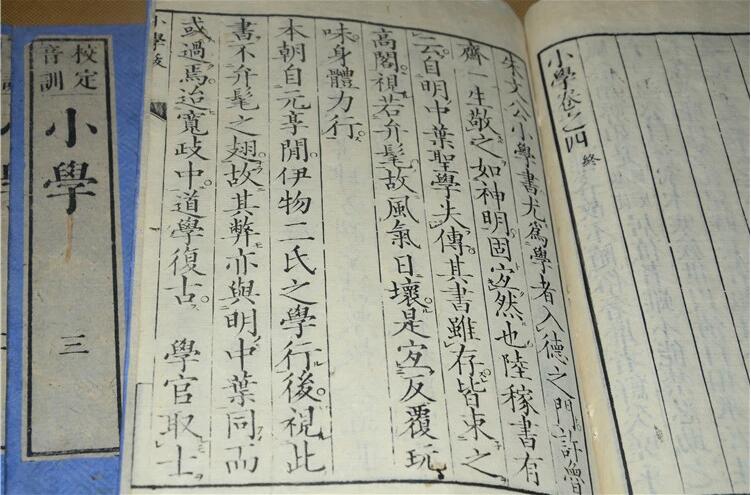 小學卷之四 終
朱文公小學書尤爲學者入德之門許魯
齋一生敬之如神明固宜然也陸稼書有
云自明中葉聖學失傳其書雖存皆束之
高閣視若弁髦故風氣日壞是宜反覆玩
味身體力行
本朝自元享間伊物二氏之學行後視此
書不弁髦之翅故其弊亦與明中葉同而
或過焉迨寬政中道學復古 學官取士
小學跋
校定
音訓
小學
三